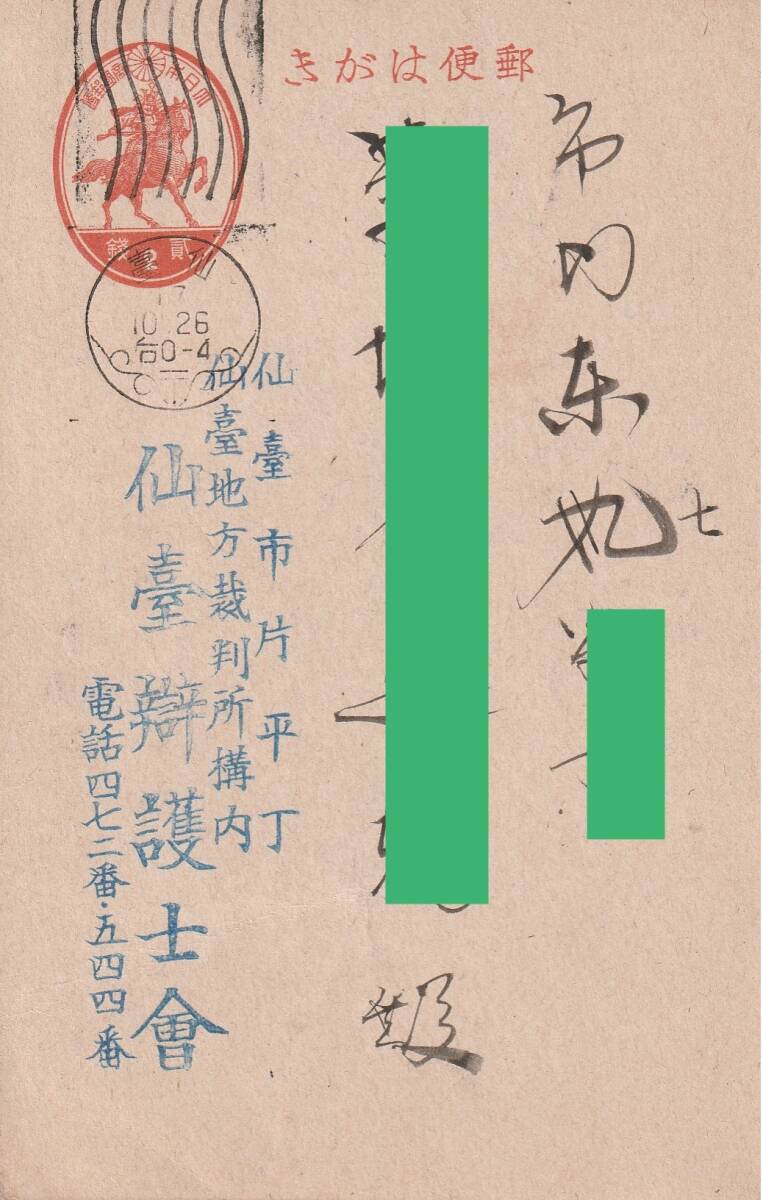 郵便はがき
大日本帝國郵便
貳錢
仙臺
17
10.26
后0-4
市内東
七
殿
仙臺市片平丁
仙臺地方裁判所構内
仙臺辯護士會
電話四七二番・五四四番